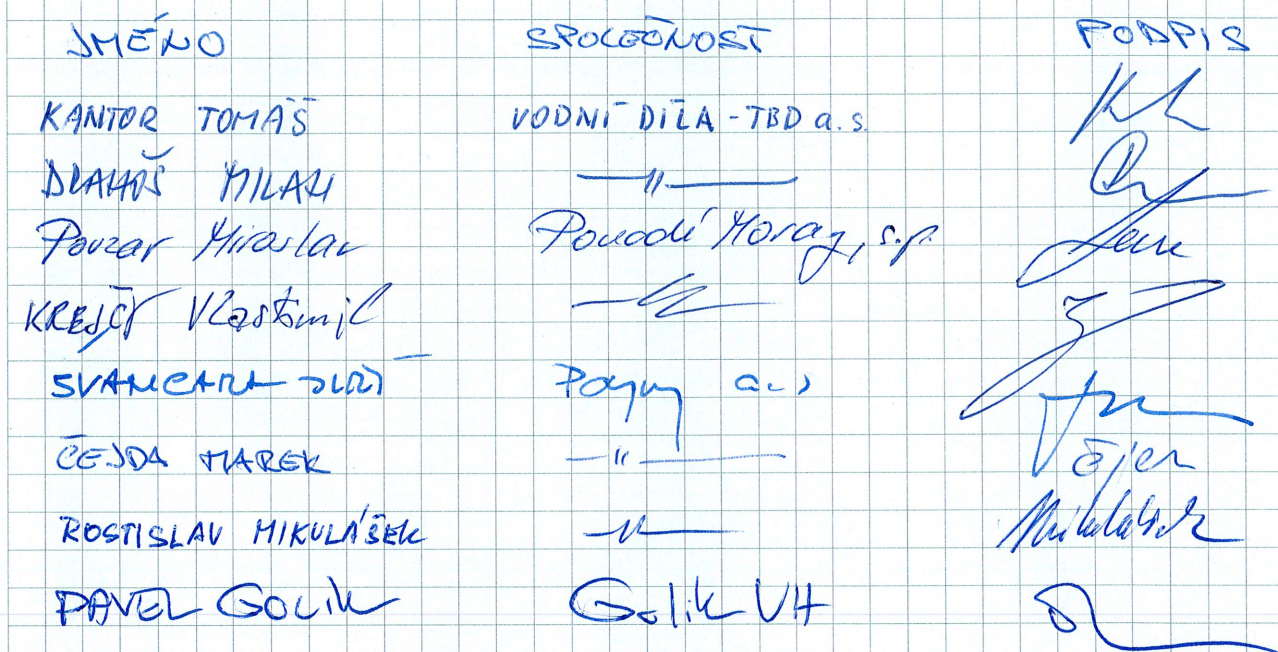 JMÉNO SPOLEČNOST PODPIS
KANTOR TOMÁŠ VODNÍ DÍLA - TBD a.s.
MILAN —〃—
Pouzar Miroslav Povodí Moravy, s.p.
KREJČÍ Vlastimil —〃—
ŠVANCARA JIŘÍ Poyry a.s
ČEJDA MAREK —〃—
ROSTISLAV MIKULÁŠEK —〃— Mikulášek
PAVEL GOLIK Golik VH